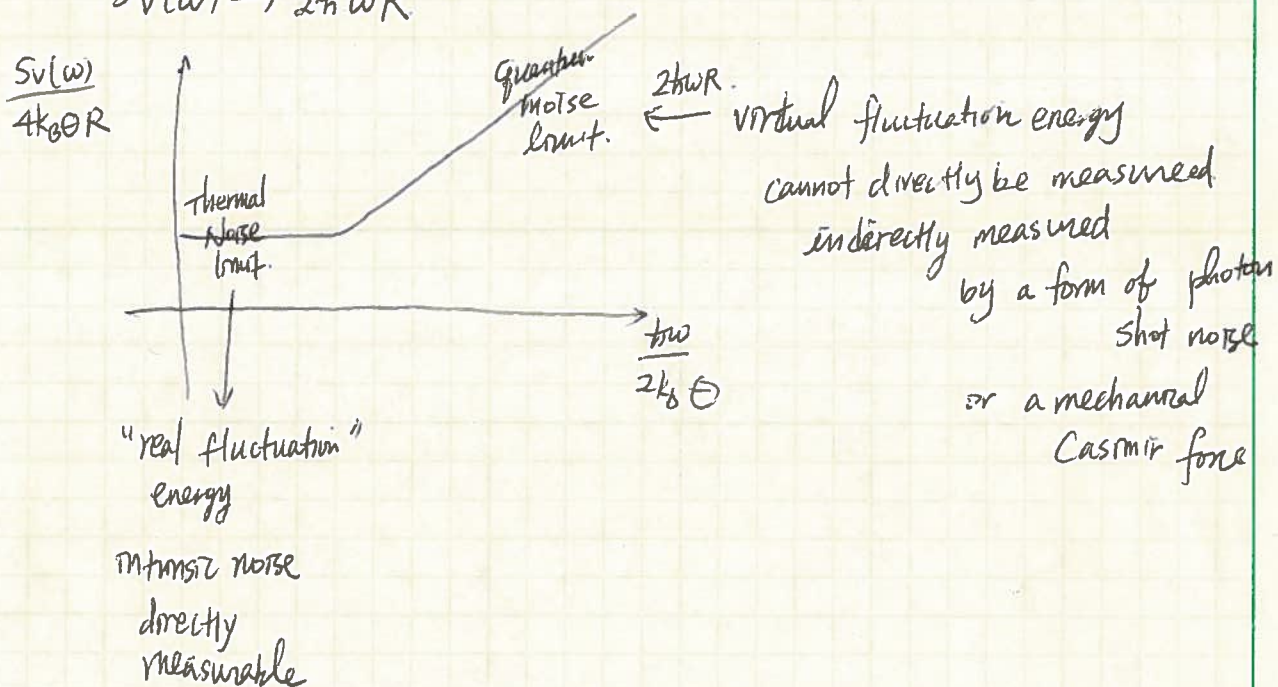 2ħωR
Sv(ω)
4kBθR
quantum
noise
limit.
2ħωR.
← virtual fluctuation energy
cannot directly be measureed
indirectly measured
by a form of photon
shot noise
or a mechanical
Casimir force
Thermal
Noise
limit.
ħω
2kBθ
"real fluctuation"
energy
intrinsic noise
directly
measurable